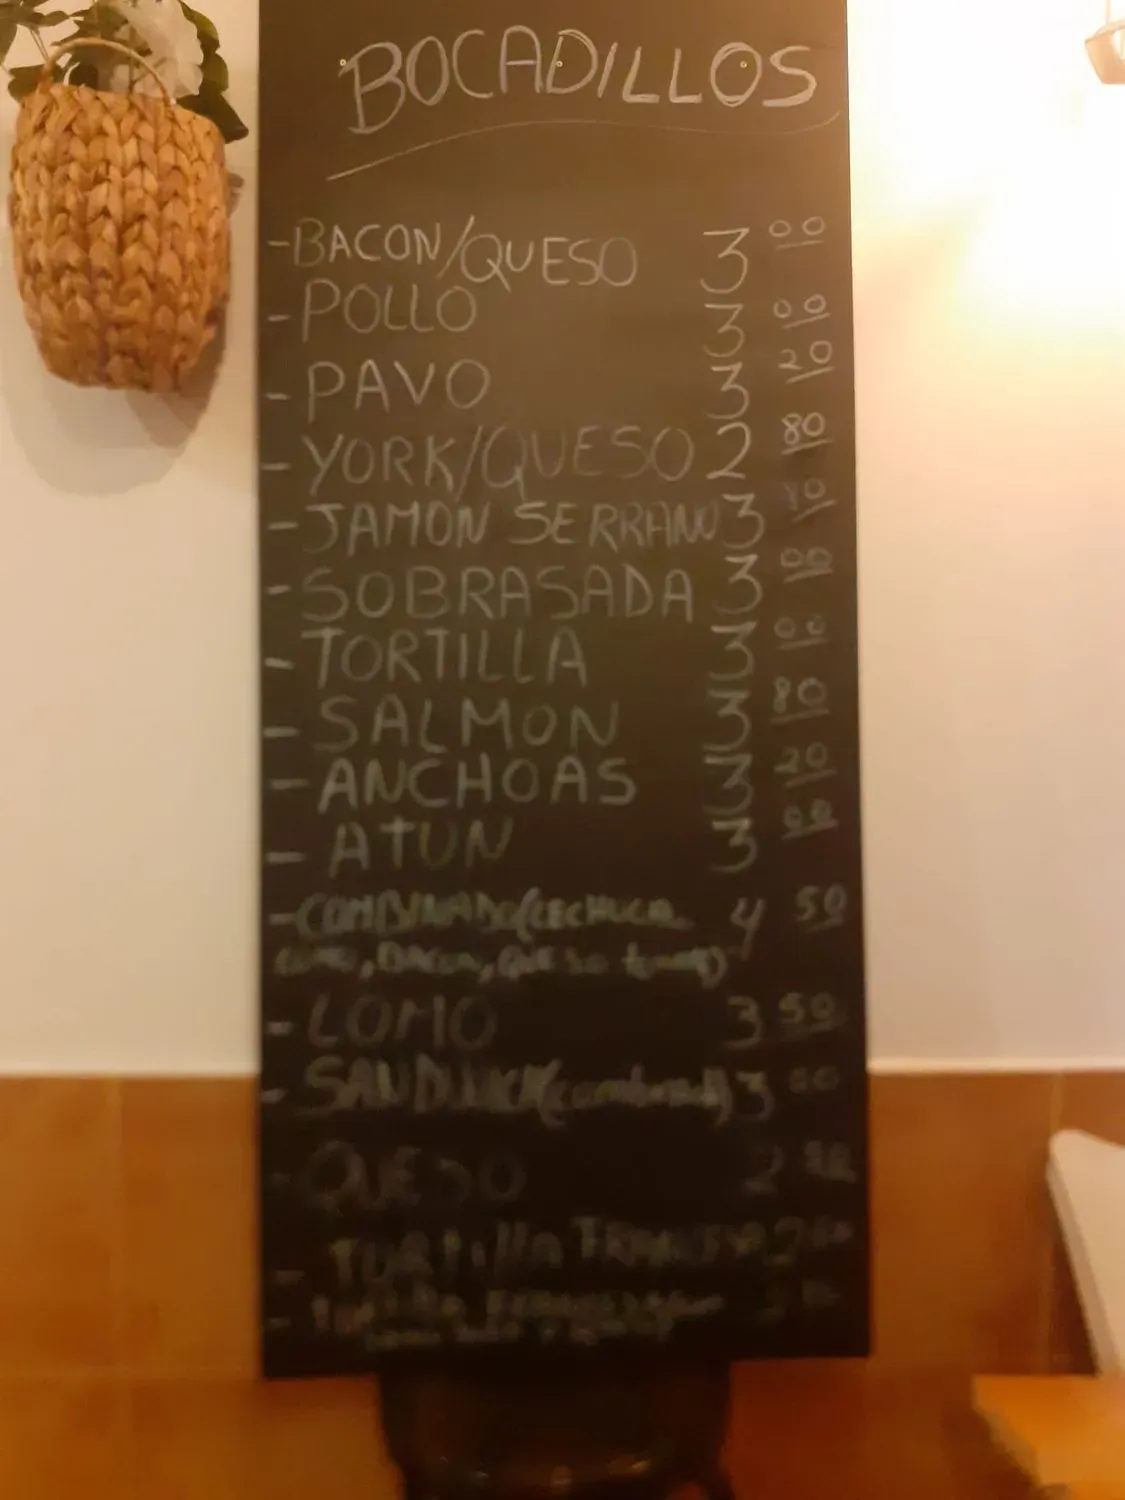 BOCADILLOS
-BACON/QUESO 3 00
-POLLO 3 00
-PAVO 3 20
-YORK/QUESO 2 80
-JAMON SERRANO 3 80
-SOBRASADA 3 00
-TORTILLA 3 00
-SALMON 3 80
-ANCHOAS 3 20
-ATUN 3 00
-COMBINADO (LECHUGA 4 50
LOMO, BACON, QUESO tomate)
-LOMO 3 50
-SANDWICH 3
-QUESO 2
-TORTILLA FRANCESA 2